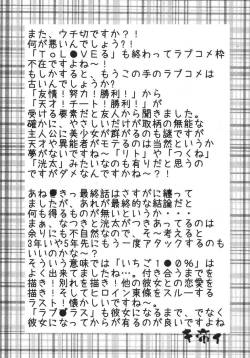 また、ウチ切ですか?!
何が悪いんでしょう?!
「ToL●VEる」も終わってラブコメ枠
不在ですよね~!
もしかすると、もうこの手のラブコメは
古いんでしょうか?
「友情!努力!勝利!」から
「天才!チート!勝利!」が
受ける要素だと友人から聞きました。
確かに、やさしいだけが取柄の無能な
主人公に美少女が群がるのも謎ですが
天才や異能者がモテるのは当然というか
夢がないですね~「リト」や「つくね」
「洸太」みたいなのも有りだと思うの
ですがダメなんですかね~?!
あね●きっ最終話はさすがに纏って
ましたが、あれが最終的な結論だと
何も得るものが無いんですよね~!
まぁ、なつきと洸太がつきあってるのは
余りにも不自然なので、そこ考えると
3年いや5年先にもう一度アタックするのも
いいのかな~?
そういう意味では「いちご1●0%」は
よく出来てましたね…。付き合うまでを
描き!別れを描き!他の彼女との恋愛を
描き!そしてヒロイン東條をスルーする
ラスト!懐かしいでした!
「ラブ●ラス」も彼女になるまで、でなく
彼女になってからが有るのが良いですよね